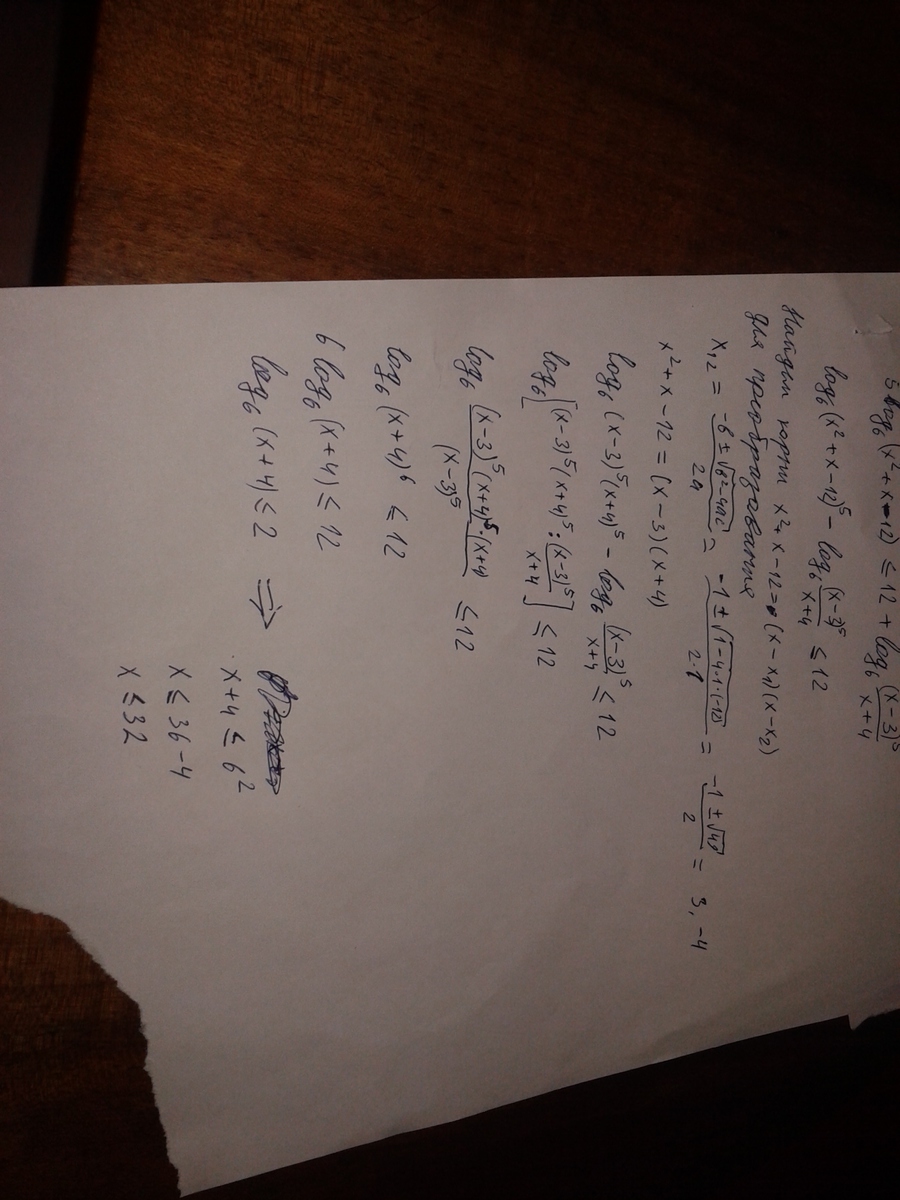 5 log₆ (x² + x - 12) ≤ 12 + log₆ (x-3)⁵/(x+4)
log₆ (x² + x - 12)⁵ - log₆ (x-3)⁵/(x+4) ≤ 12
Найдем корни x² + x - 12 = (x - x₁)(x - x₂)
для преобразования
x₁,₂ = (-b ± √(b² - 4ac))/2a = (-1 ± √(1 - 4·1·(-12)))/(2·1) = (-1 ± √49)/2 = 3, -4
x² + x - 12 = (x - 3)(x + 4)
log₆ (x-3)⁵(x+4)⁵ - log₆ (x-3)⁵/(x+4) ≤ 12
log₆ [(x-3)⁵(x+4)⁵ : (x-3)⁵/(x+4)] ≤ 12
log₆ (x-3)⁵(x+4)⁵·(x+4)/(x-3)⁵ ≤ 12
log₆ (x+4)⁶ ≤ 12
6 log₆ (x+4) ≤ 12
log₆ (x+4) ≤ 2 ⇒
x + 4 ≤ 6²
x ≤ 36 - 4
x ≤ 32